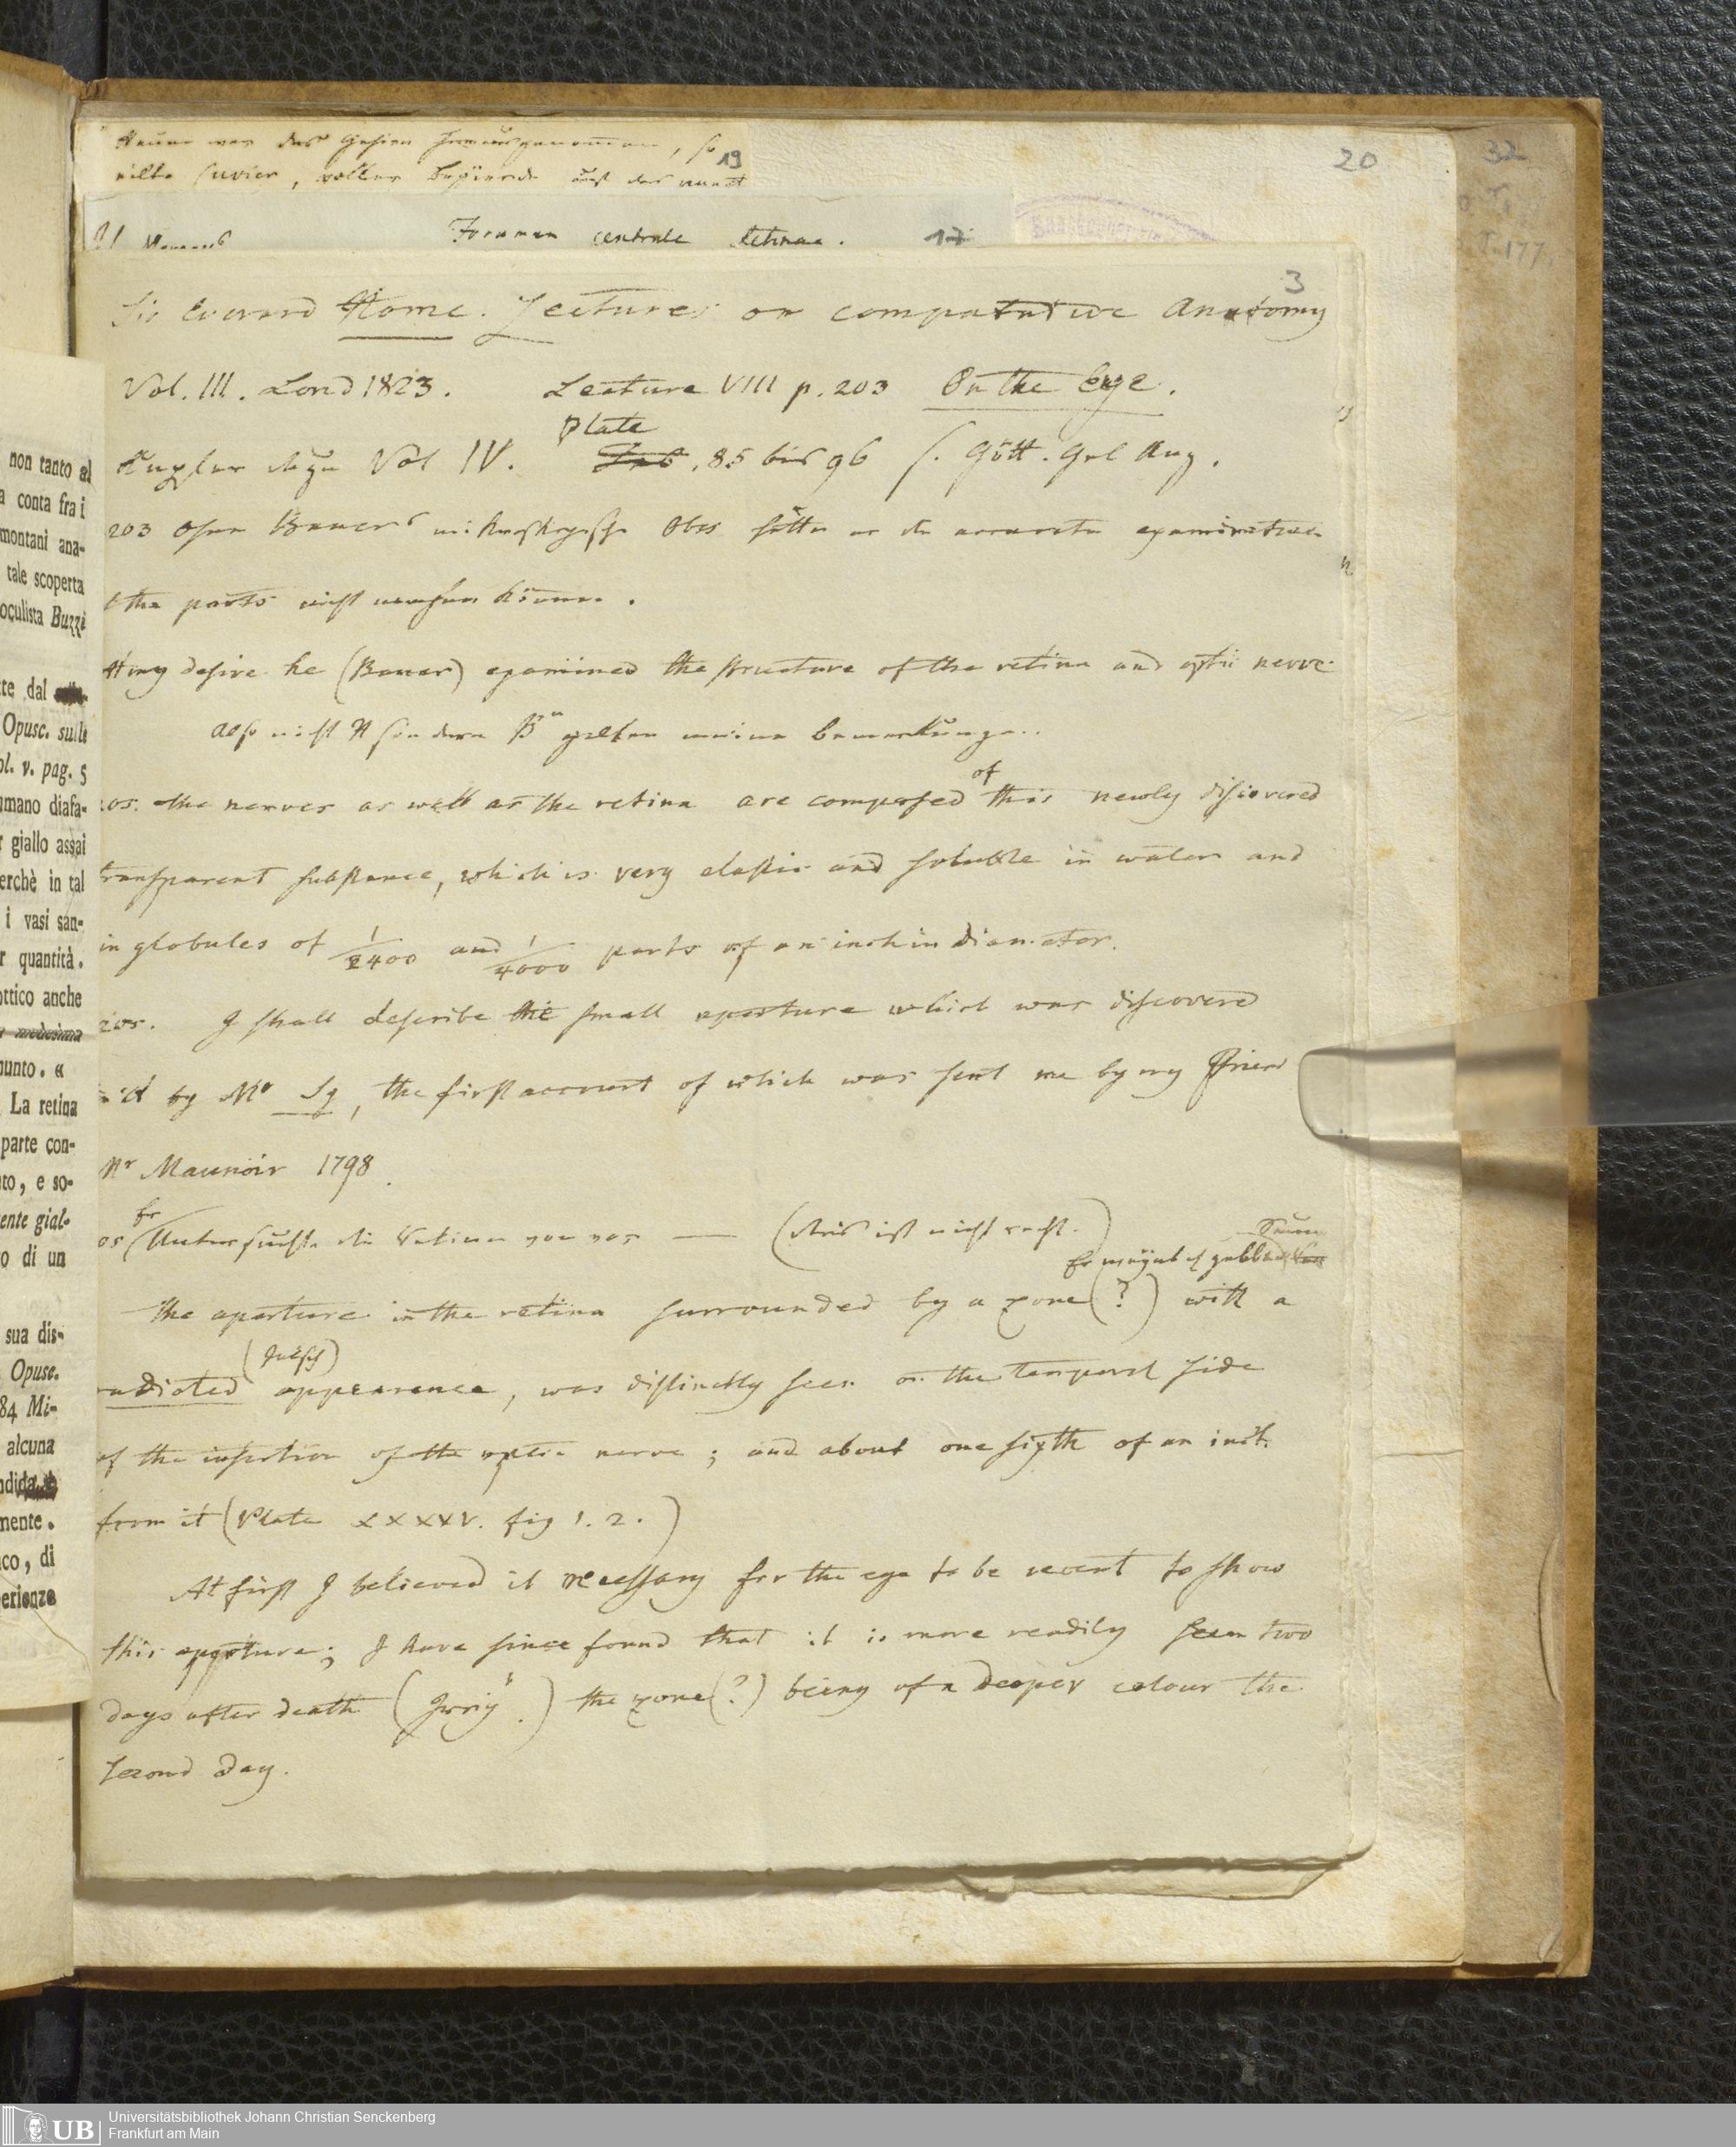 non tanto al
a conta fra i
montani ana-
tale scoperta
oculista Buzzi
te dal
Opusc. sulle
ol. v. pag. 5
mano diafa-
giallo assai
erchè in tal
i vasi san-
r quantità.
ottico anche
medesima
unto. «
La retina
parte con-
to, e so-
ente gial-
o di un
sua dis-
Opusc.
84 Mi-
alcuna
ndida
mente.
co, di
erienze
war das Gehirn herausgenommen, so
eilte Cuvier, voller Begierde
19
20
32
177
Foramen centrale Retinae. 17
3
Sir Everard Home. Lectures on comparative Anatomy
Vol. III. Lond 1823. Lecture VIII p. 203 On the Eye.
Plate
Kupfer dazu Vol IV. Tab. 85 bis 96 s. Gött. Gel Anz.
203 Ohne Bauers mikroskopische Obs hätte er die accurate examination
the parts nicht machen können.
At my desire he (Bauer) examined the structure of the retina and optic nerve
also nicht H sondern B gelten meine Bemerkungen.
of
the nerves as well as the retina are composed this newly discovered
transparent substance, which is very elastic and soluble in water and
in globules of 1/2400 and 1/4000 parts of an inch in diameter.
205. I shall describe the small aperture which was discovered
in it by Mr Sg, the first account of which was sent me by my Friend
Mr Maunoir 1798.
Er
Untersuchte die Retina von vor — (dies ist nicht recht.)
Er meynt d gelben
The aperture in the retina surrounded by a zone (?) with a
(falsch)
radiated appearance, was distinctly seen on the temporal side
of the insertion of the optic nerve; and about one sixth of an inch
from it (Plate XXXXV. fig 1. 2.)
At first I believed it necessary for the eye to be recent to show
this aperture; I have since found that it is more readily seen two
days after death (Irrig!) the zone (?) being of a deeper colour the
second day.
UB
Universitätsbibliothek Johann Christian Senckenberg
Frankfurt am Main